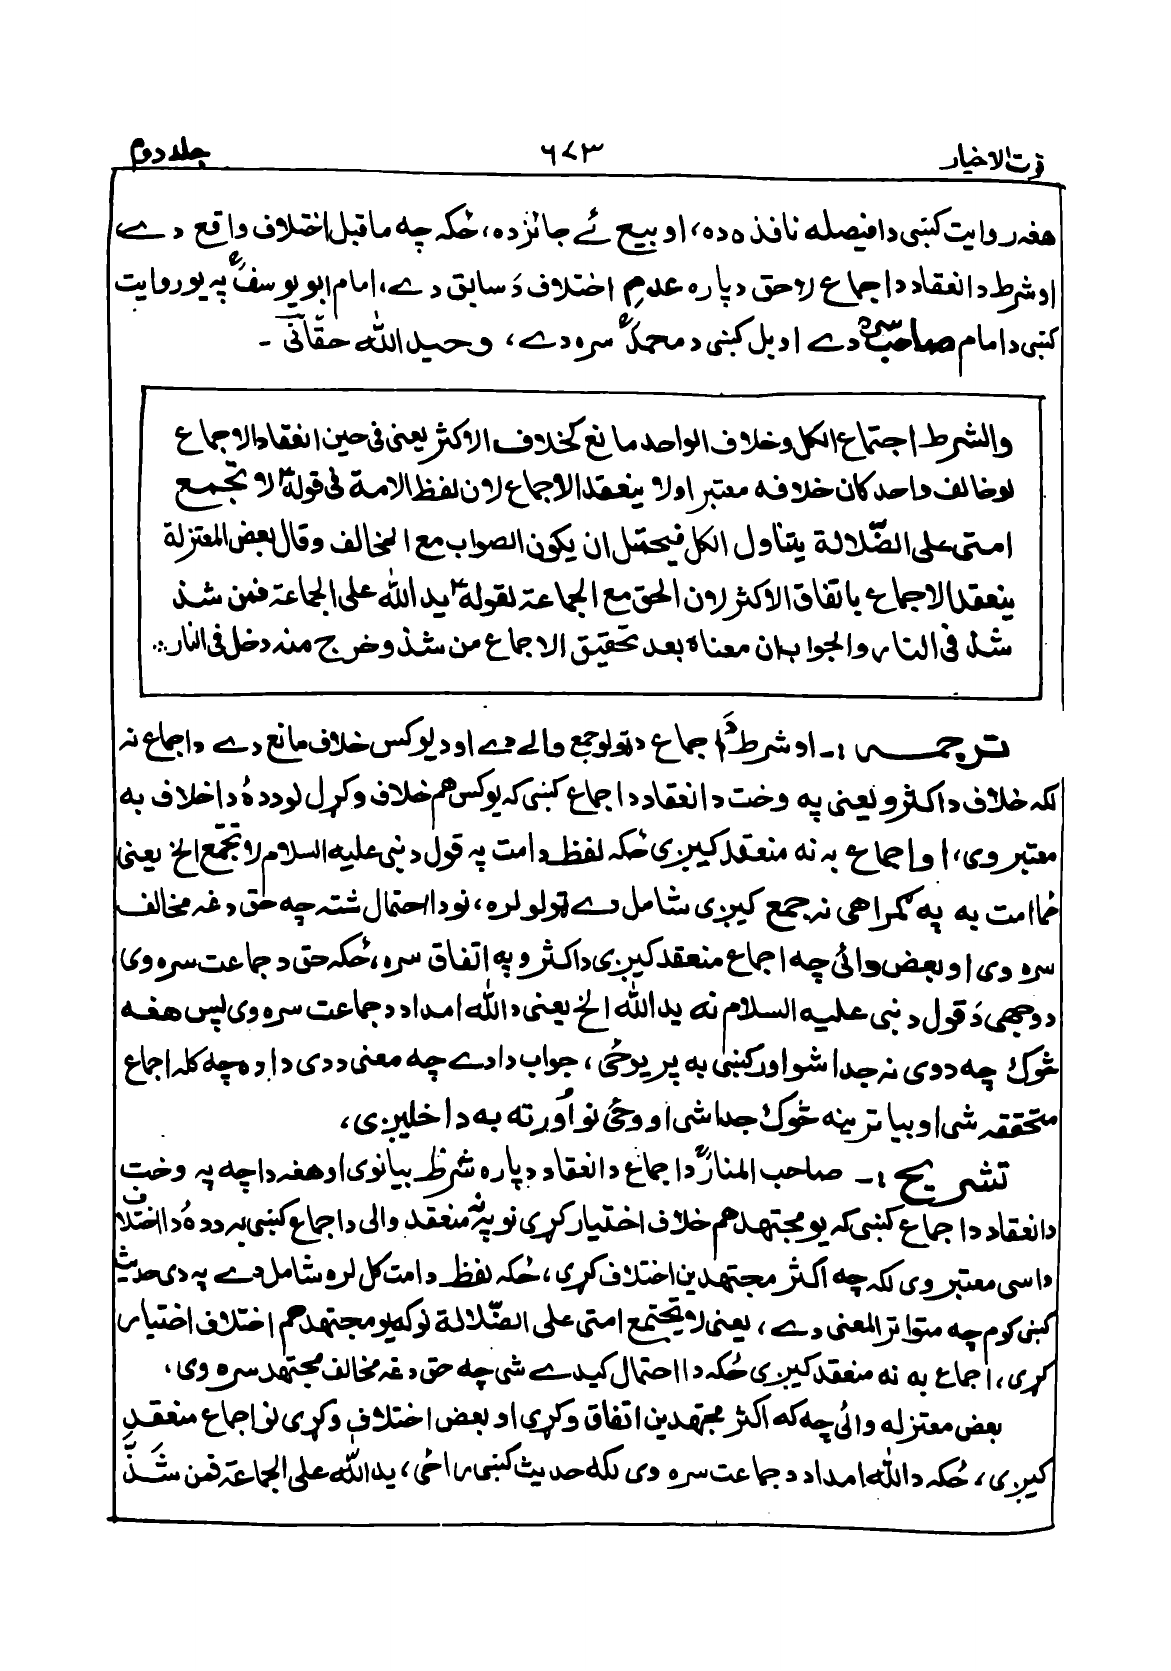 قوت الاخیار ۶۷۳ جلد دوم
هغه روایت کښی دا فیصله نافذه ده، او بیع ئے جائز ده، ځکه چه ماقبل اختلاف واقع دے
او شرط د انعقاد د اجماع لاحق دپاره عدمِ اختلاف دَ سابق دے، امام ابو یوسفؒ په یو روایت
کښی د امام صاحبؒ سره دے او بل کښی د محمدؒ سره دے، وحید الله حقانی -
والشرط اجتماع الکل وخلاف الواحد مانع کخلاف الاکثر یعنی فی حین انعقاد الاجماع
لو خالف واحد کان خلافه معتبرا ولا ینعقد الاجماع لان لفظ الامة فی قوله؏ لا تجمع
امتی علی الضّلالة یتناول الکل فیحتمل ان یکون الصواب مع المخالف وقال بعض المعتزلة
ینعقد الاجماع باتفاق الاکثر لان الحق مع الجماعة لقوله؏ ید الله علی الجماعة فمن شذ
شذ فی النار والجواب ان معناه بعد تحقیق الاجماع من شذ وخرج منه دخل فی النار
ترجمه :- او شرط دَ اجماع د ټولو جمع والے دے او د یو کس خلاف مانع دے د اجماع نه
لکه خلاف د اکثرو یعنی په وخت د انعقاد د اجماع کښی که یو کس هم خلاف وکړل نو د ده دا خلاف به
معتبر وی، او اجماع به نه منعقد کیږی ځکه لفظ د امت په قول د نبی علیه السلام لا تجتمع الخ یعنی
ځما امت به په ګمراهی نه جمع کیږی شامل دے ټولو لره، نو دا احتمال شته چه حق د غه مخالف
سره وی او بعض وائی چه اجماع منعقد کیږی د اکثرو په اتفاق سره، ځکه حق د جماعت سره وی
د وجهی دَ قول د نبی علیه السلام نه ید الله الخ یعنی د الله امداد د جماعت سره وی پس هغه
څوک چه د دوی نه جدا شو اور کښی به پریوځی، جواب دا دے چه معنی د دی دا ده چه کله اجماع
متحققه شی او بیا ترینه څوک جدا شی او وځی نو اُور ته به داخلیږی،
تشریح :- صاحب المنارؒ د اجماع د انعقاد دپاره شرط بیانوی او هغه دا چه په وخت
د انعقاد د اجماع کښی که یو مجتهد هم خلاف اختیار کړی نو په نه منعقد والی د اجماع کښی به د ده دا اختلاف
داسی معتبر وی لکه چه اکثر مجتهدین اختلاف کړی، ځکه لفظ د امت کل لره شامل دے په دی حدیث
کښی کوم چه متواتر المعنی دے، یعنی لا یجتمع امتی علی الضّلالة نو که یو مجتهد هم اختلاف اختیار
کړی، اجماع به نه منعقد کیږی ځکه دا احتمال کیدے شی چه حق د غه مخالف مجتهد سره وی،
بعض معتزله وائی چه که اکثر مجتهدین اتفاق وکړی او بعض اختلاف وکړی نو اجماع منعقد
کیږی، ځکه د الله امداد د جماعت سره وی لکه حدیث کښی راځی، ید الله علی الجماعة فمن شَذَّ